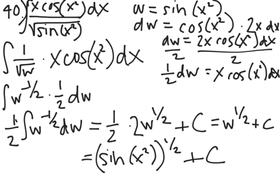 40) ∫ x cos(x²)dx / √sin(x²)
w = sin(x²)
dw = cos(x²) · 2x dx
dw/2 = 2x cos(x²)dx/2
∫ 1/√w · x cos(x²)dx
1/2 dw = x cos(x²)dx
∫ w^-1/2 · 1/2 dw
1/2 ∫ w^-1/2 dw = 1/2 · 2w^1/2 + C = w^1/2 + c
= (sin(x²))^1/2 + C